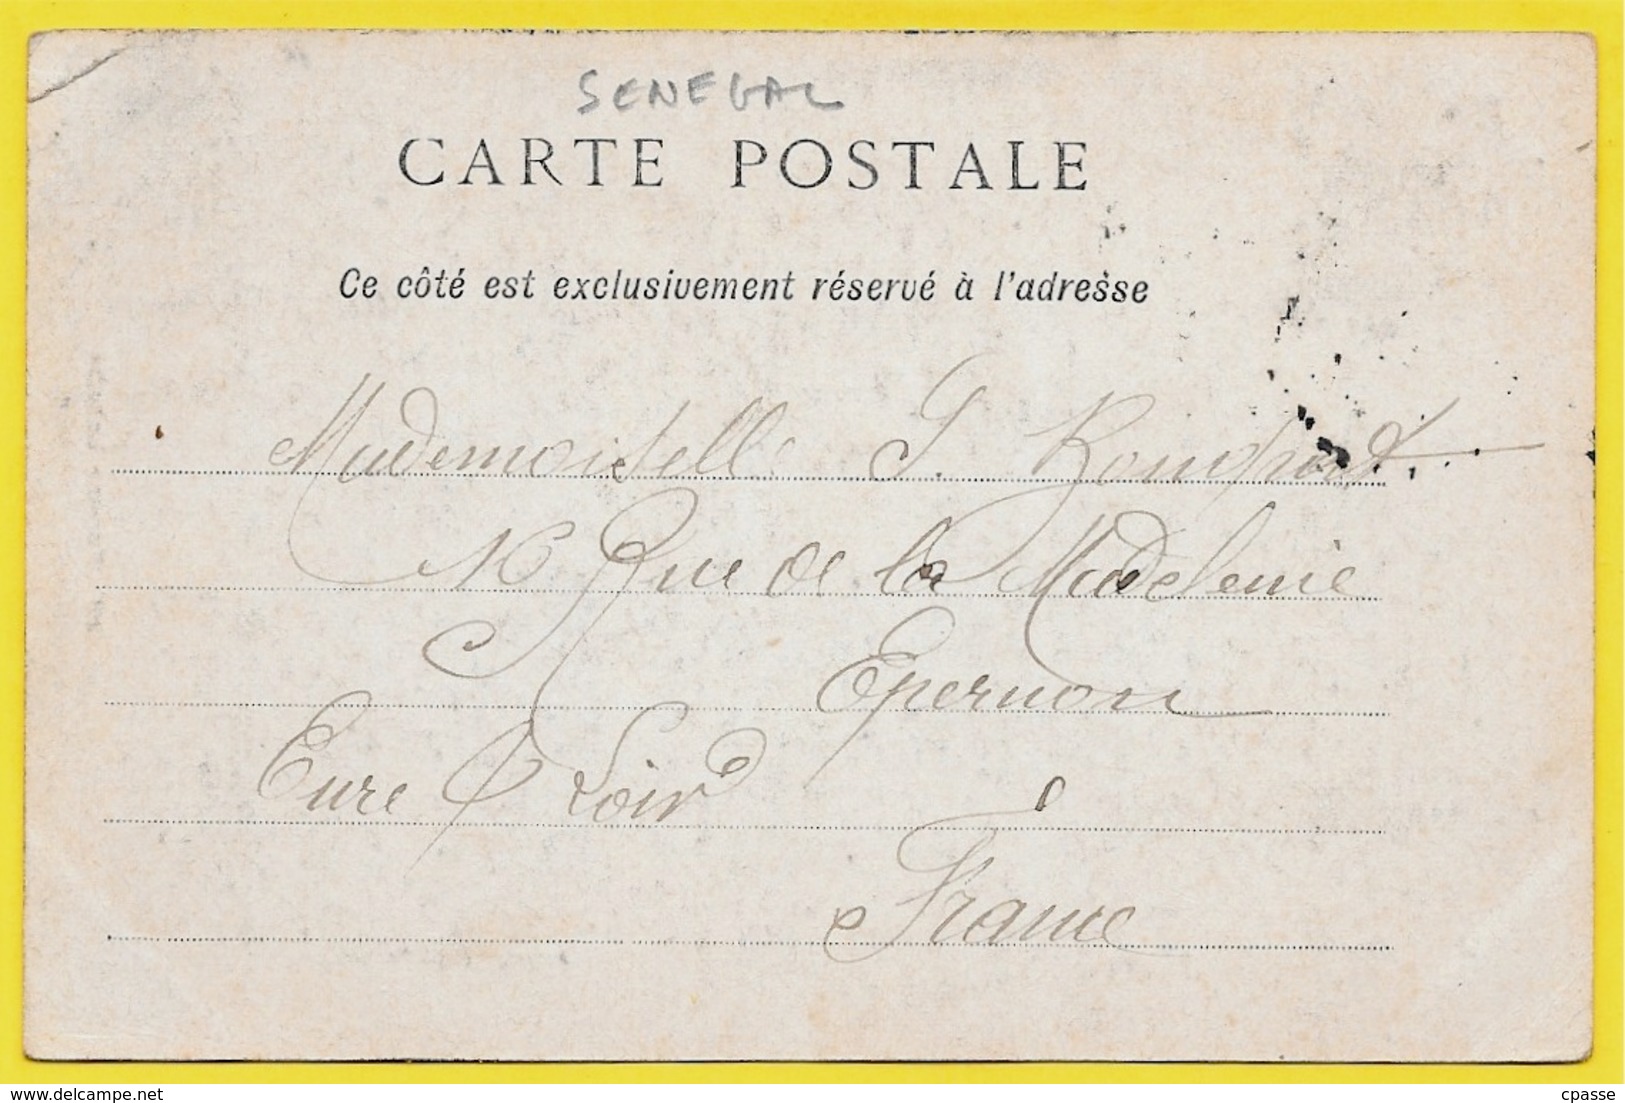 SENEGAL
CARTE POSTALE
Ce côté est exclusivement réservé à l'adresse
Mademoiselle
16 Rue de la Madeleine
Epernon
Eure & Loir
France
cpasse